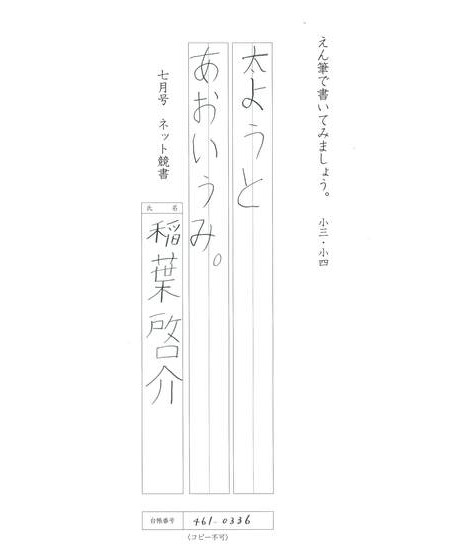 えん筆で書いてみましょう。 小三・小四
太ようと
あおいうみ。
七月号 ネット競書
氏 名
稲葉啓介
台帳番号 461-0336
〈コピー不可〉